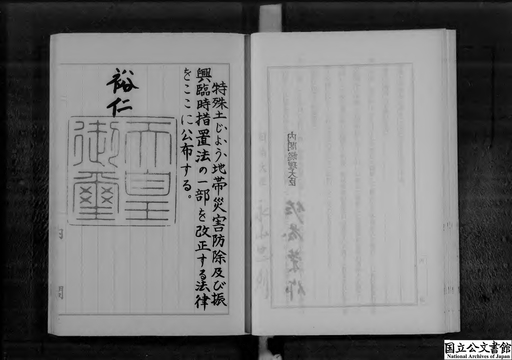 特殊土じよう地帯災害防除及び振
興臨時措置法の一部を改正する法律
をここに公布する。
裕仁
天皇
御璽
内閣総理大臣
国立公文書館
National Archives of Japan